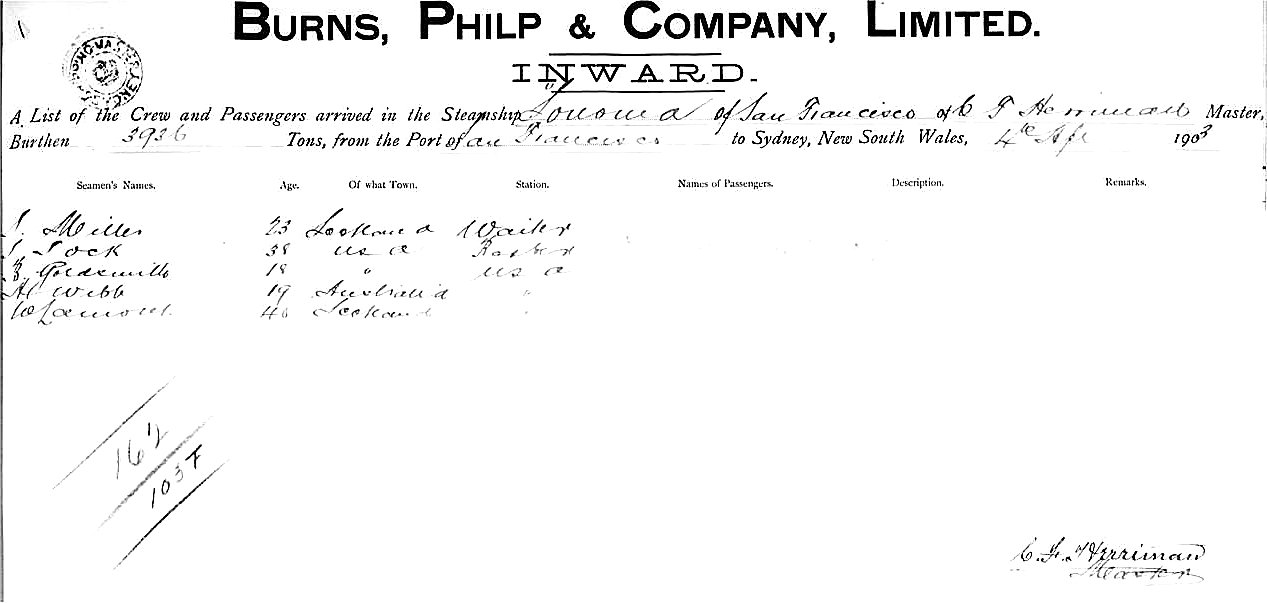 BURNS, PHILP & COMPANY, LIMITED.
INWARD.
A List of the Crew and Passengers arrived in the Steamship Sonoma of San Francisco of C F Herriman Master,
Burthen 3936 Tons, from the Port of San Francisco to Sydney, New South Wales, 4th Apl 1903
Seamen's Names. Age. Of what Town. Station. Names of Passengers. Description. Remarks.
Miller 23 Scotland Waiter
38 USA
Goldsmith 18 " US a
H Webb 19 Australia "
W Lamont 40 Scotland "
162
103 F
C. F. Herriman
Master